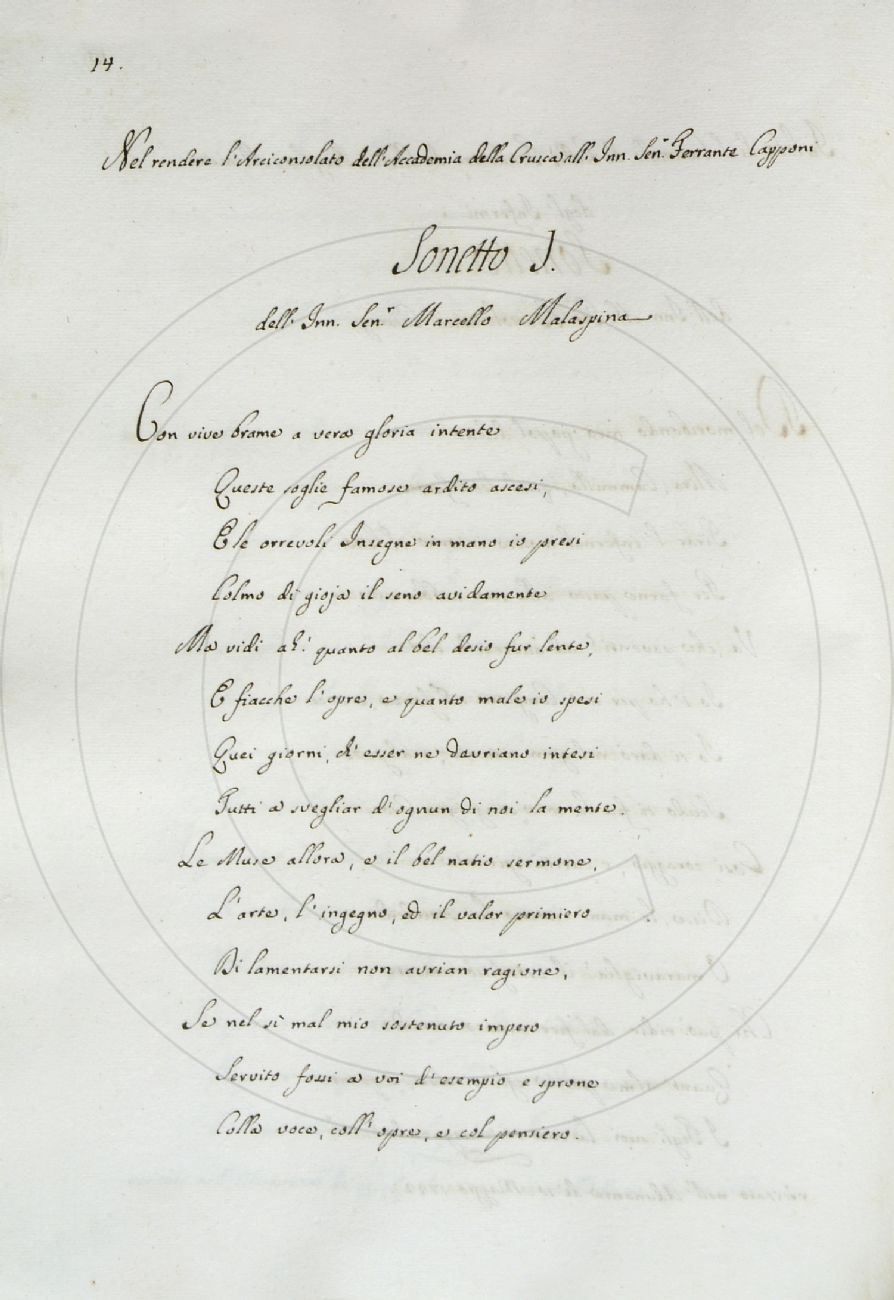 14.
Nel rendere l'Arciconsolato dell'Accademia della Crusca all' Inn. Sen.r Ferrante Capponi
Sonetto I.
dell' Inn. Sen.r Marcello Malaspina
Con vive brame a vera gloria intente
Queste soglie famose ardito ascesi,
E le orrevoli Insegne in mano io presi
Colmo di gioja il seno avidamente
Ma vidi ah! quanto al bel desio fur lente,
E fiacche l'opre, e quanto male io spesi
Quei giorni, ch'esser ne dovriano intesi
Tutti a svegliar d'ognun di noi la mente.
Le Muse allora, e il bel natio sermone,
L'arte, l'ingegno, ed il valor primiero
Di lamentarsi non avrian ragione,
Se nel sì mal mio sostenuto impero
Servito fossi a voi d'esempio e sprone
Colla voce, coll'opre, e col pensiero.